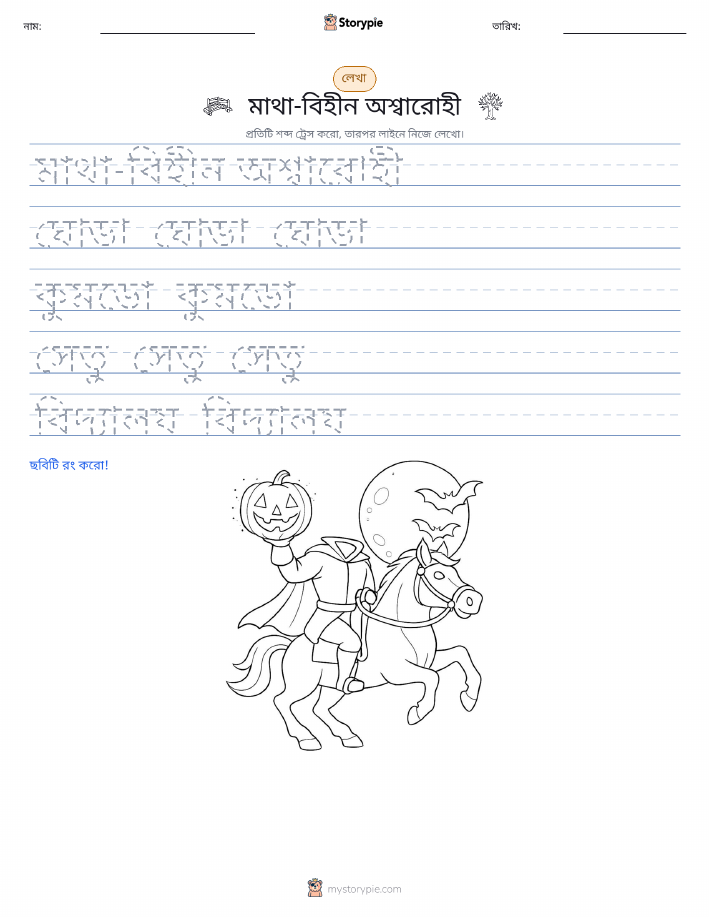 নাম:
Storypie
তারিখ:
লেখা
মাথা-বিহীন অশ্বারোহী
প্রতিটি শব্দ ট্রেস করো, তারপর লাইনে নিজে লেখো।
মাথা-বিহীন অশ্বারোহী
ঘোডা ঘোডা ঘোডা
কুমডো কুমডো
সেতু সেতু সেতু
বিদ্যালয বিদ্যালয
ছবিটি রং করো!
mystorypie.com